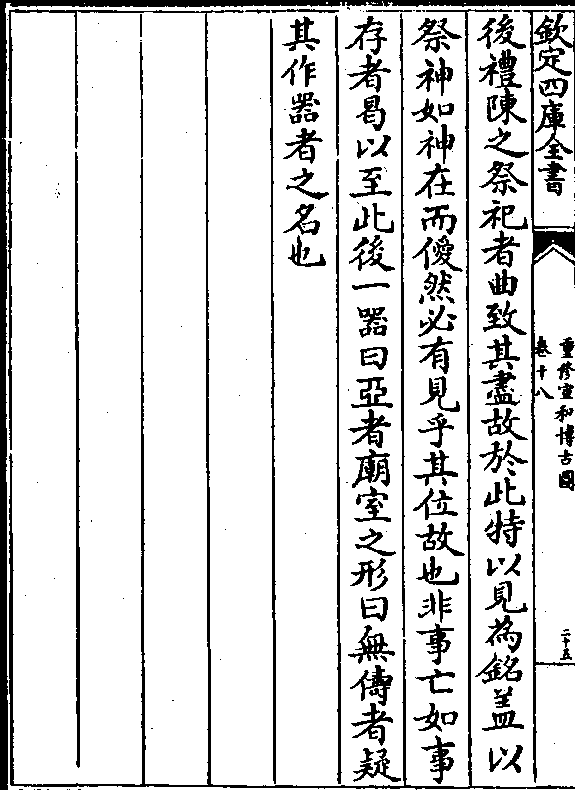 欽定四庫全書
重修宣和博古圖
卷十八
二十五
後禮陳之祭祀者曲致其盡故於此特以見為銘盖以
祭神如神在而僾然必有見乎其位故也非事亡如事
存者曷以至此後一器曰亞者廟室之形曰無儔者疑
其作器者之名也